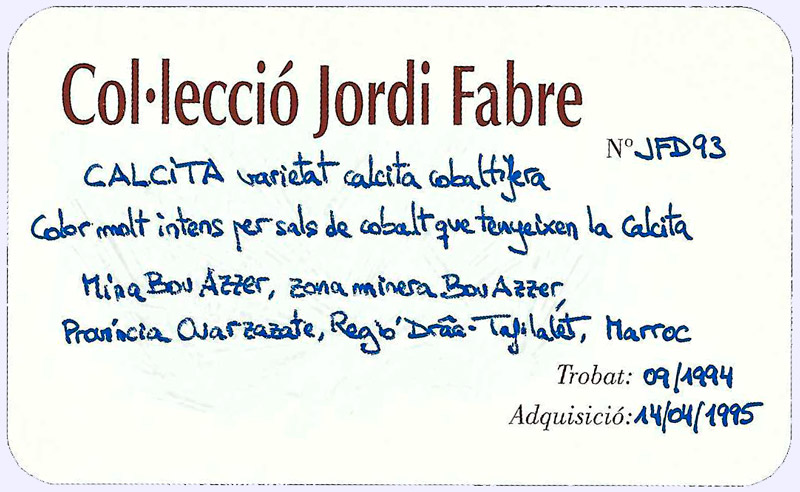 Col·lecció Jordi Fabre
Nº JFD93
CALCITA varietat calcita cobaltífera
Color molt intens per sals de cobalt que tenyeixen la Calcita
Mina Bou Azzer, zona minera Bou Azzer,
Província Ouarzazate, Regió Drâa-Tafilalet, Marroc
Trobat: 09/1994
Adquisició: 14/04/1995